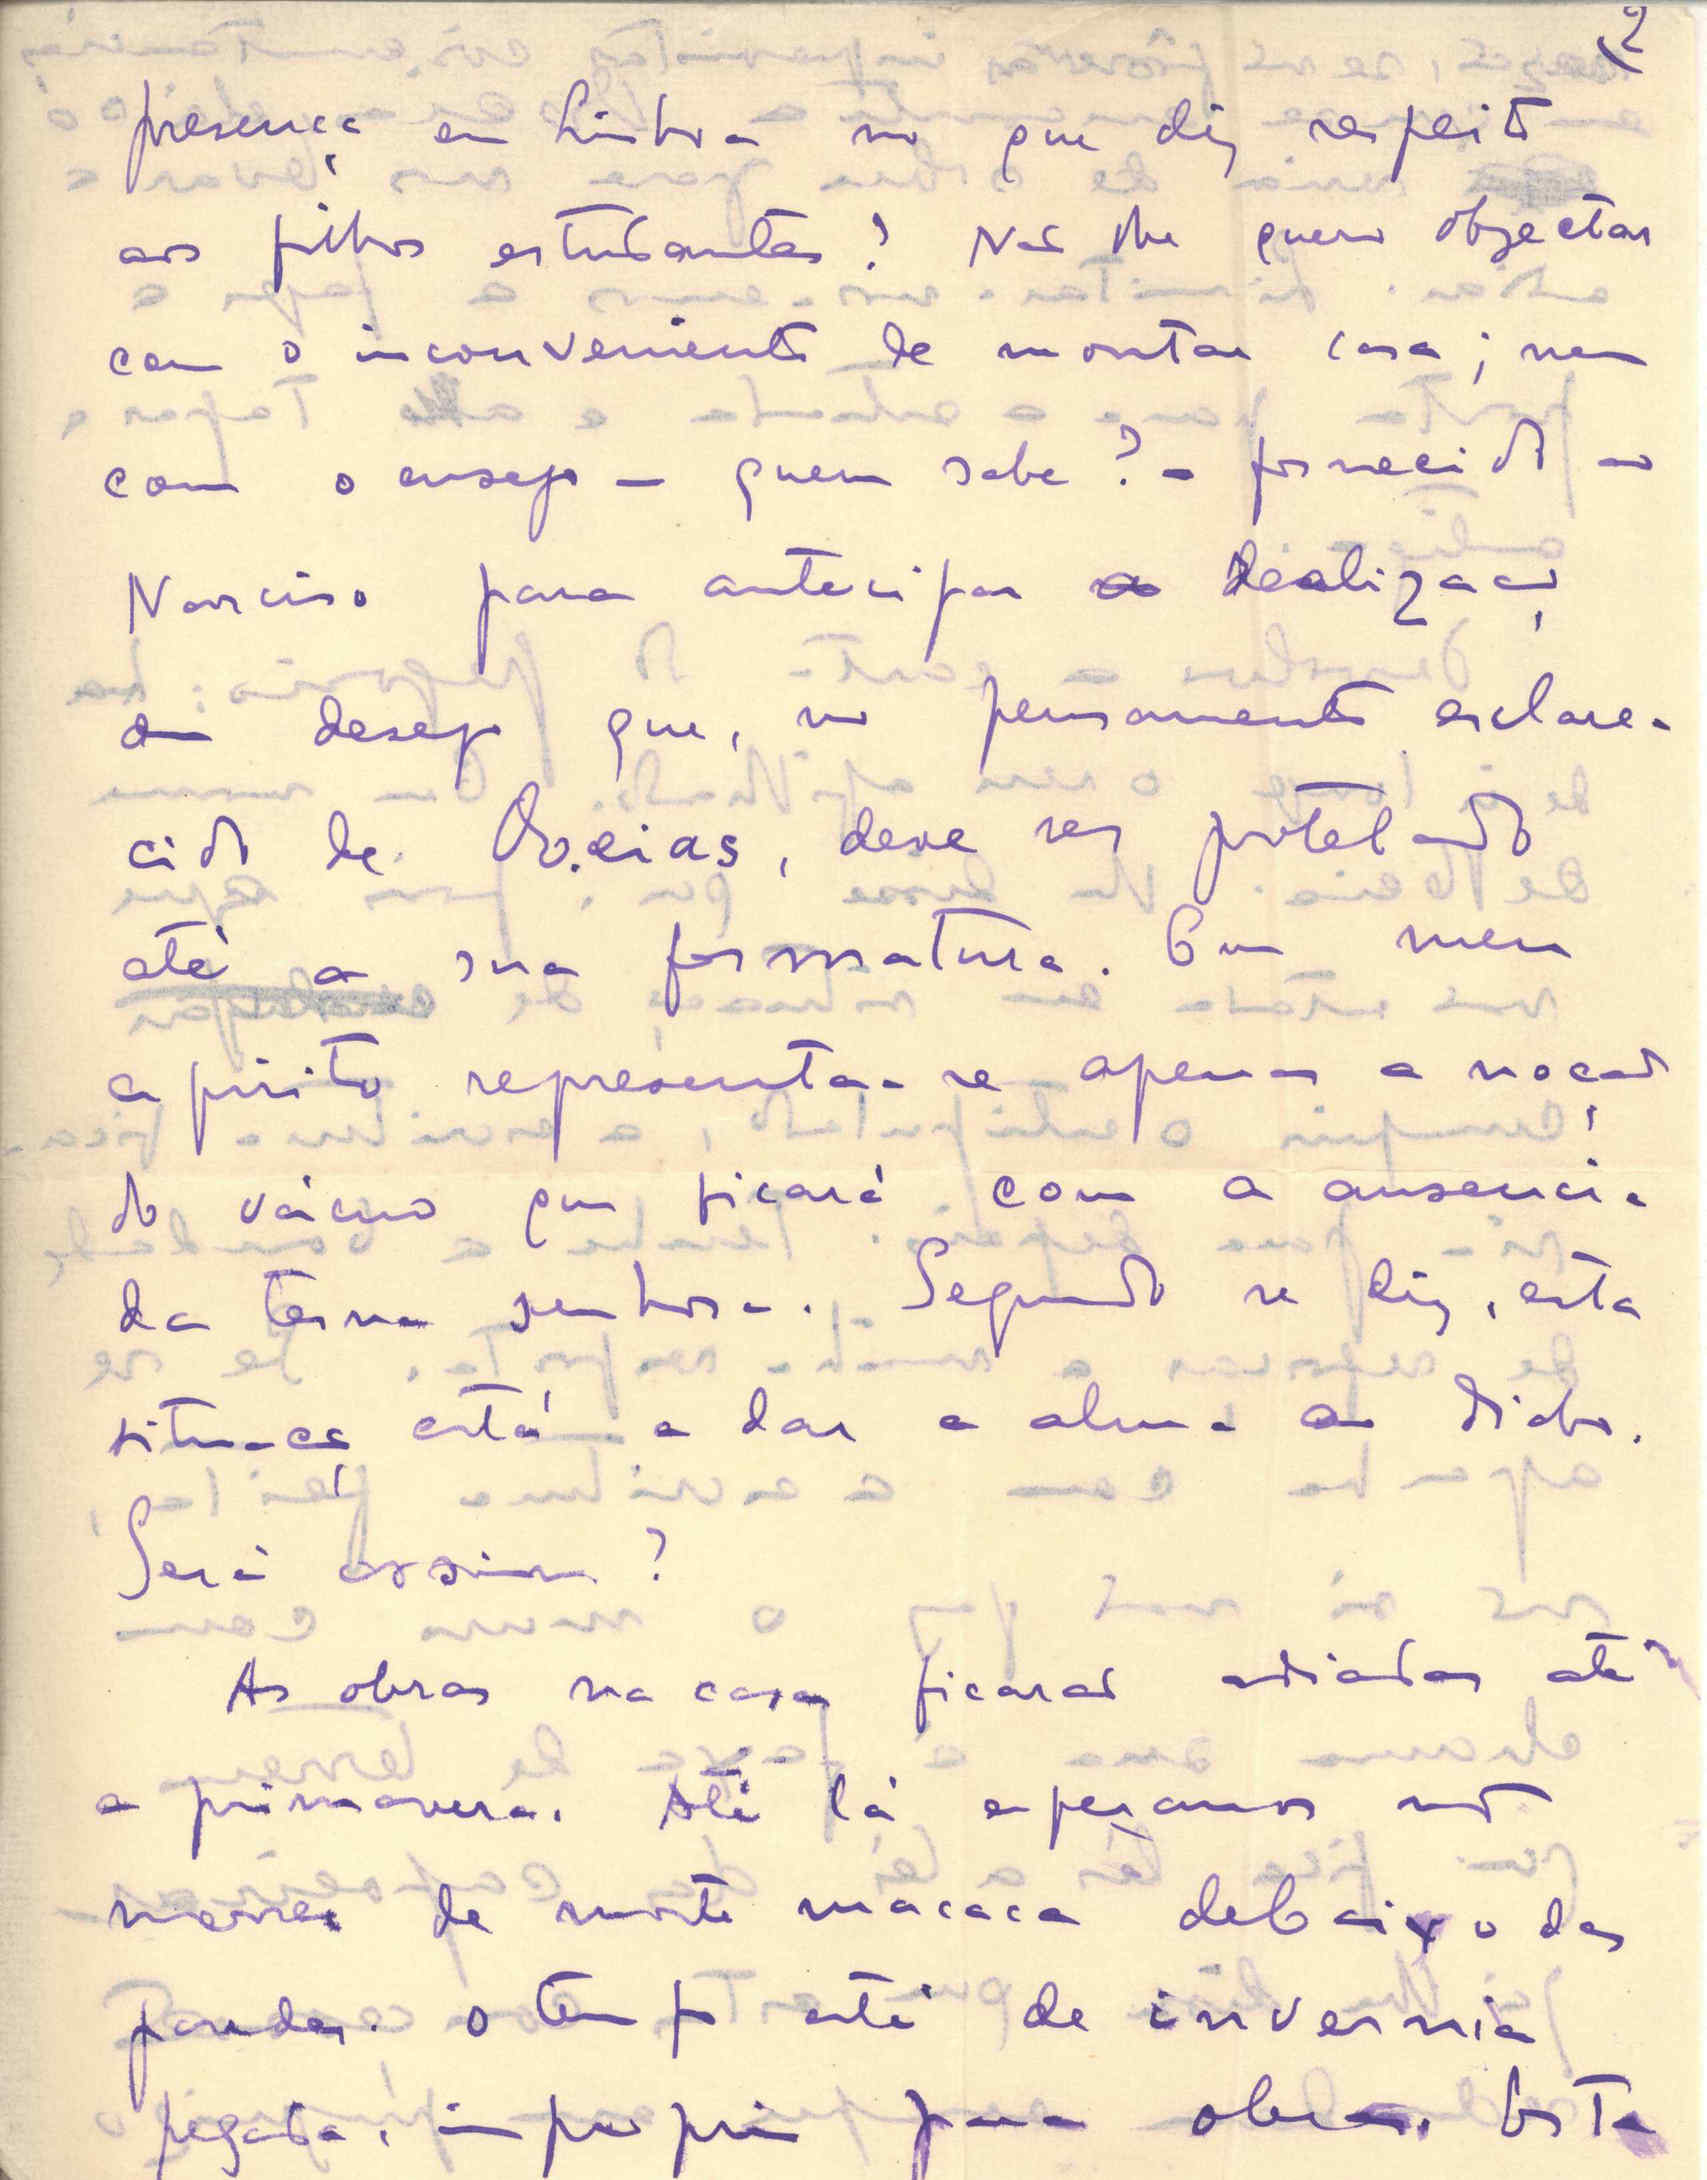 2
presença em Lisboa no que diz respeito
aos filhos estudantes? Não lhe quero objectar
com o inconveniente de montar casa; nem
com o ensejo – quem sabe? – fornecido ao
Narciso para antecipar a realização
do desejo que, no pensamento esclare-
cido de Oseias, deve ser protelado
até a sua formatura. Em meu
espirito representa-se apenas a noção
do vácuo que ficará com a ausencia
da terna senhora. Segundo se diz, esta
situação está a dar a alma ao diabo.
Será assim?
As obras na casa ficarão adiadas até
a primavera. Até lá esperamos não
morrer de morte macaca debaixo das
paredes. O tempo está de invernia
pegada, improprio para obras. Esta